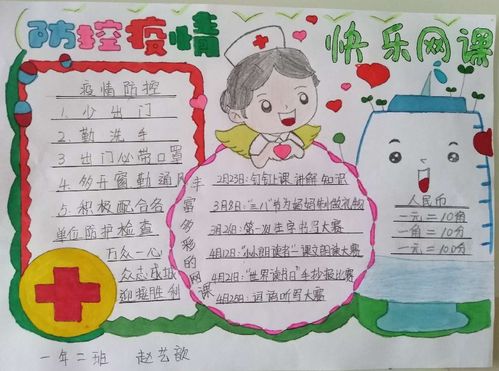 防控疫情
快乐网课
疫情防控
1. 少出门
2. 勤洗手
3 出门必带口罩
4. 多开窗勤通风
5. 积极配合各
单位防护检查
万众一心
众志成城
迎接胜利
丰富多彩的网课
2月23日:钉钉上课 讲解 知识
3月8日:"三八"节为妈妈制做礼物
3月24日:第一次生字书写大赛
4月12日:"小小朗读者"—课文朗读大赛
4月21日:"世界读书日"手抄报比赛
4月25日:词语听写大赛
人民币
一元=10角
一角=10分
一元=100分
一年二班 赵艺歆